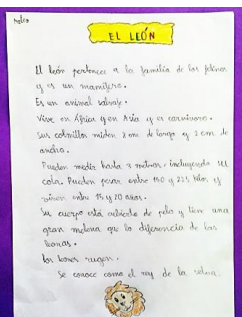 EL LEÓN
El león pertenece a la familia de los felinos
y es un mamífero.
Es un animal salvaje.
Vive en África y en Asia y es carnívoro.
Sus colmillos miden 8 cm de largo y 2 cm de
ancho.
Pueden medir hasta 3 metros, incluyendo su
cola. Pueden pesar entre 150 y 225 kilos y
viven entre 15 y 20 años.
Su cuerpo está cubierto de pelo y tiene una
gran melena que lo diferencia de las
leonas.
Los leones rugen.
Se conoce como el rey de la selva.